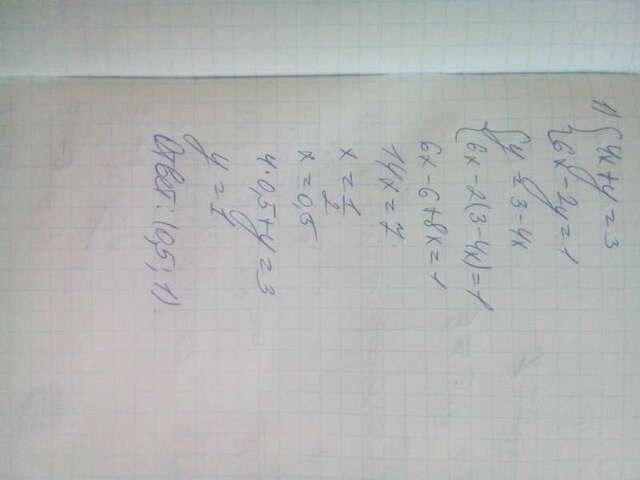 1) { 4x + y = 3
{ 6x - 2y = 1
{ y = 3 - 4x
{ 6x - 2(3 - 4x) = 1
6x - 6 + 8x = 1
14x = 7
x = 1/2
x = 0,5
4 · 0,5 + y = 3
y = 1
Ответ: (0,5; 1).